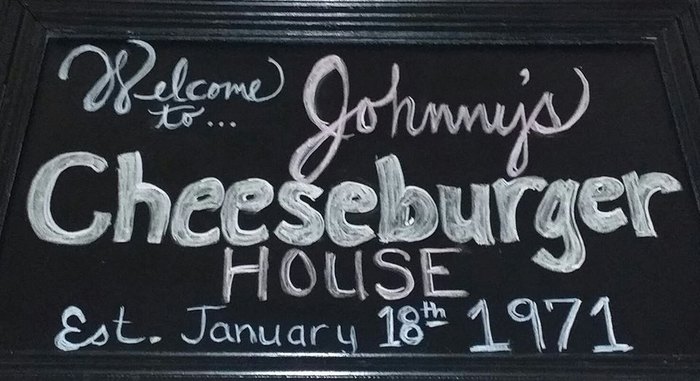 Welcome to... Johnny's
Cheeseburger
HOUSE
Est. January 18th 1971